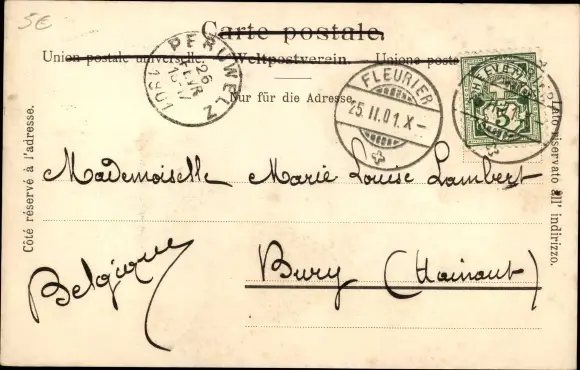 5€
Carte postale.
Union postale universelle. — Weltpostverein. — Unione posta
Nur für die Adresse.
PERUWELZ
26
FEVR
1901
FLEURIER
25.II.01.X—
FLEURIER
5
Côté réservé à l'adresse.
Lato riservato all' indirizzo.
Mademoiselle Marie Louise Lambert
Bury (Hainaut)
Belgique